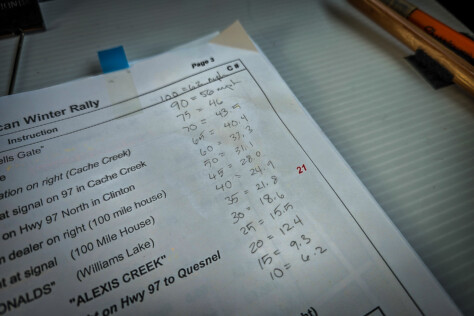 Page 3
can Winter Rally
C #
Instruction
100 = 62 mph
ells Gate"
90 = 56 mph
75 = 46
ation on right (Cache Creek)
70 = 43.5
65 = 40.4
at signal on 97 in Cache Creek
60 = 37.3
50 = 31.1
on Hwy 97 North in Clinton
45 = 28.0
40 = 24.9
21
n dealer on right (100 mile house)
35 = 21.8
at signal (100 Mile House)
30 = 18.6
(Williams Lake)
25 = 15.5
ONALDS"
20 = 12.4
"ALEXIS CREEK"
15 = 9.3
on Hwy 97 to Quesnel
10 = 6.2